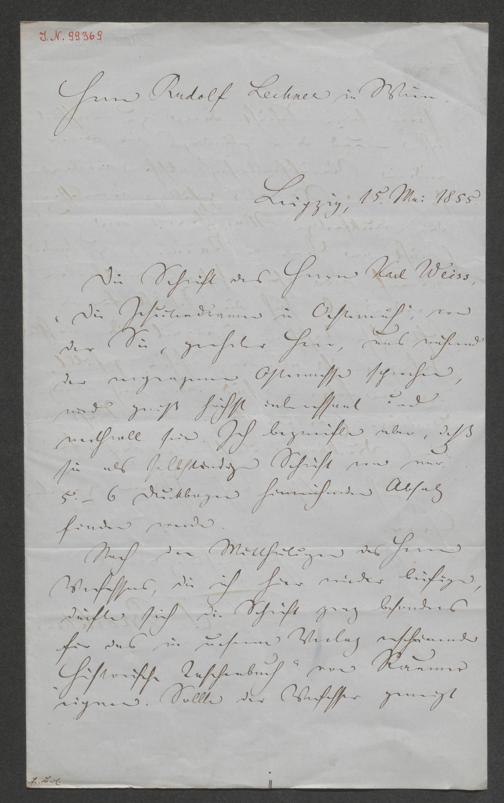 J. N. 99369
Herrn Rudolf Lechner in Wien.
Leipzig, 15. Mai 1855
Die Schrift des Herrn Karl Weiss,
„Die in Oesterreich", von
der Sie, geehrter Herr, uns während
der vergangenen Ostermesse sprachen,
wird gewiß höchst interessant und
werthvoll sein. Ich bezweifle aber, daß
sie als selbständige Schrift von nur
5 – 6 Druckbogen hinreichenden Absatz
finden werde.
Nach den Mittheilungen des Herrn
Verfassers, die ich hier wieder beifüge,
dürfte sich die Schrift ganz besonders
für das in unserm Verlag erscheinende
„Historische Taschenbuch" von Raumer
eignen. Sollte der Verfasser geneigt